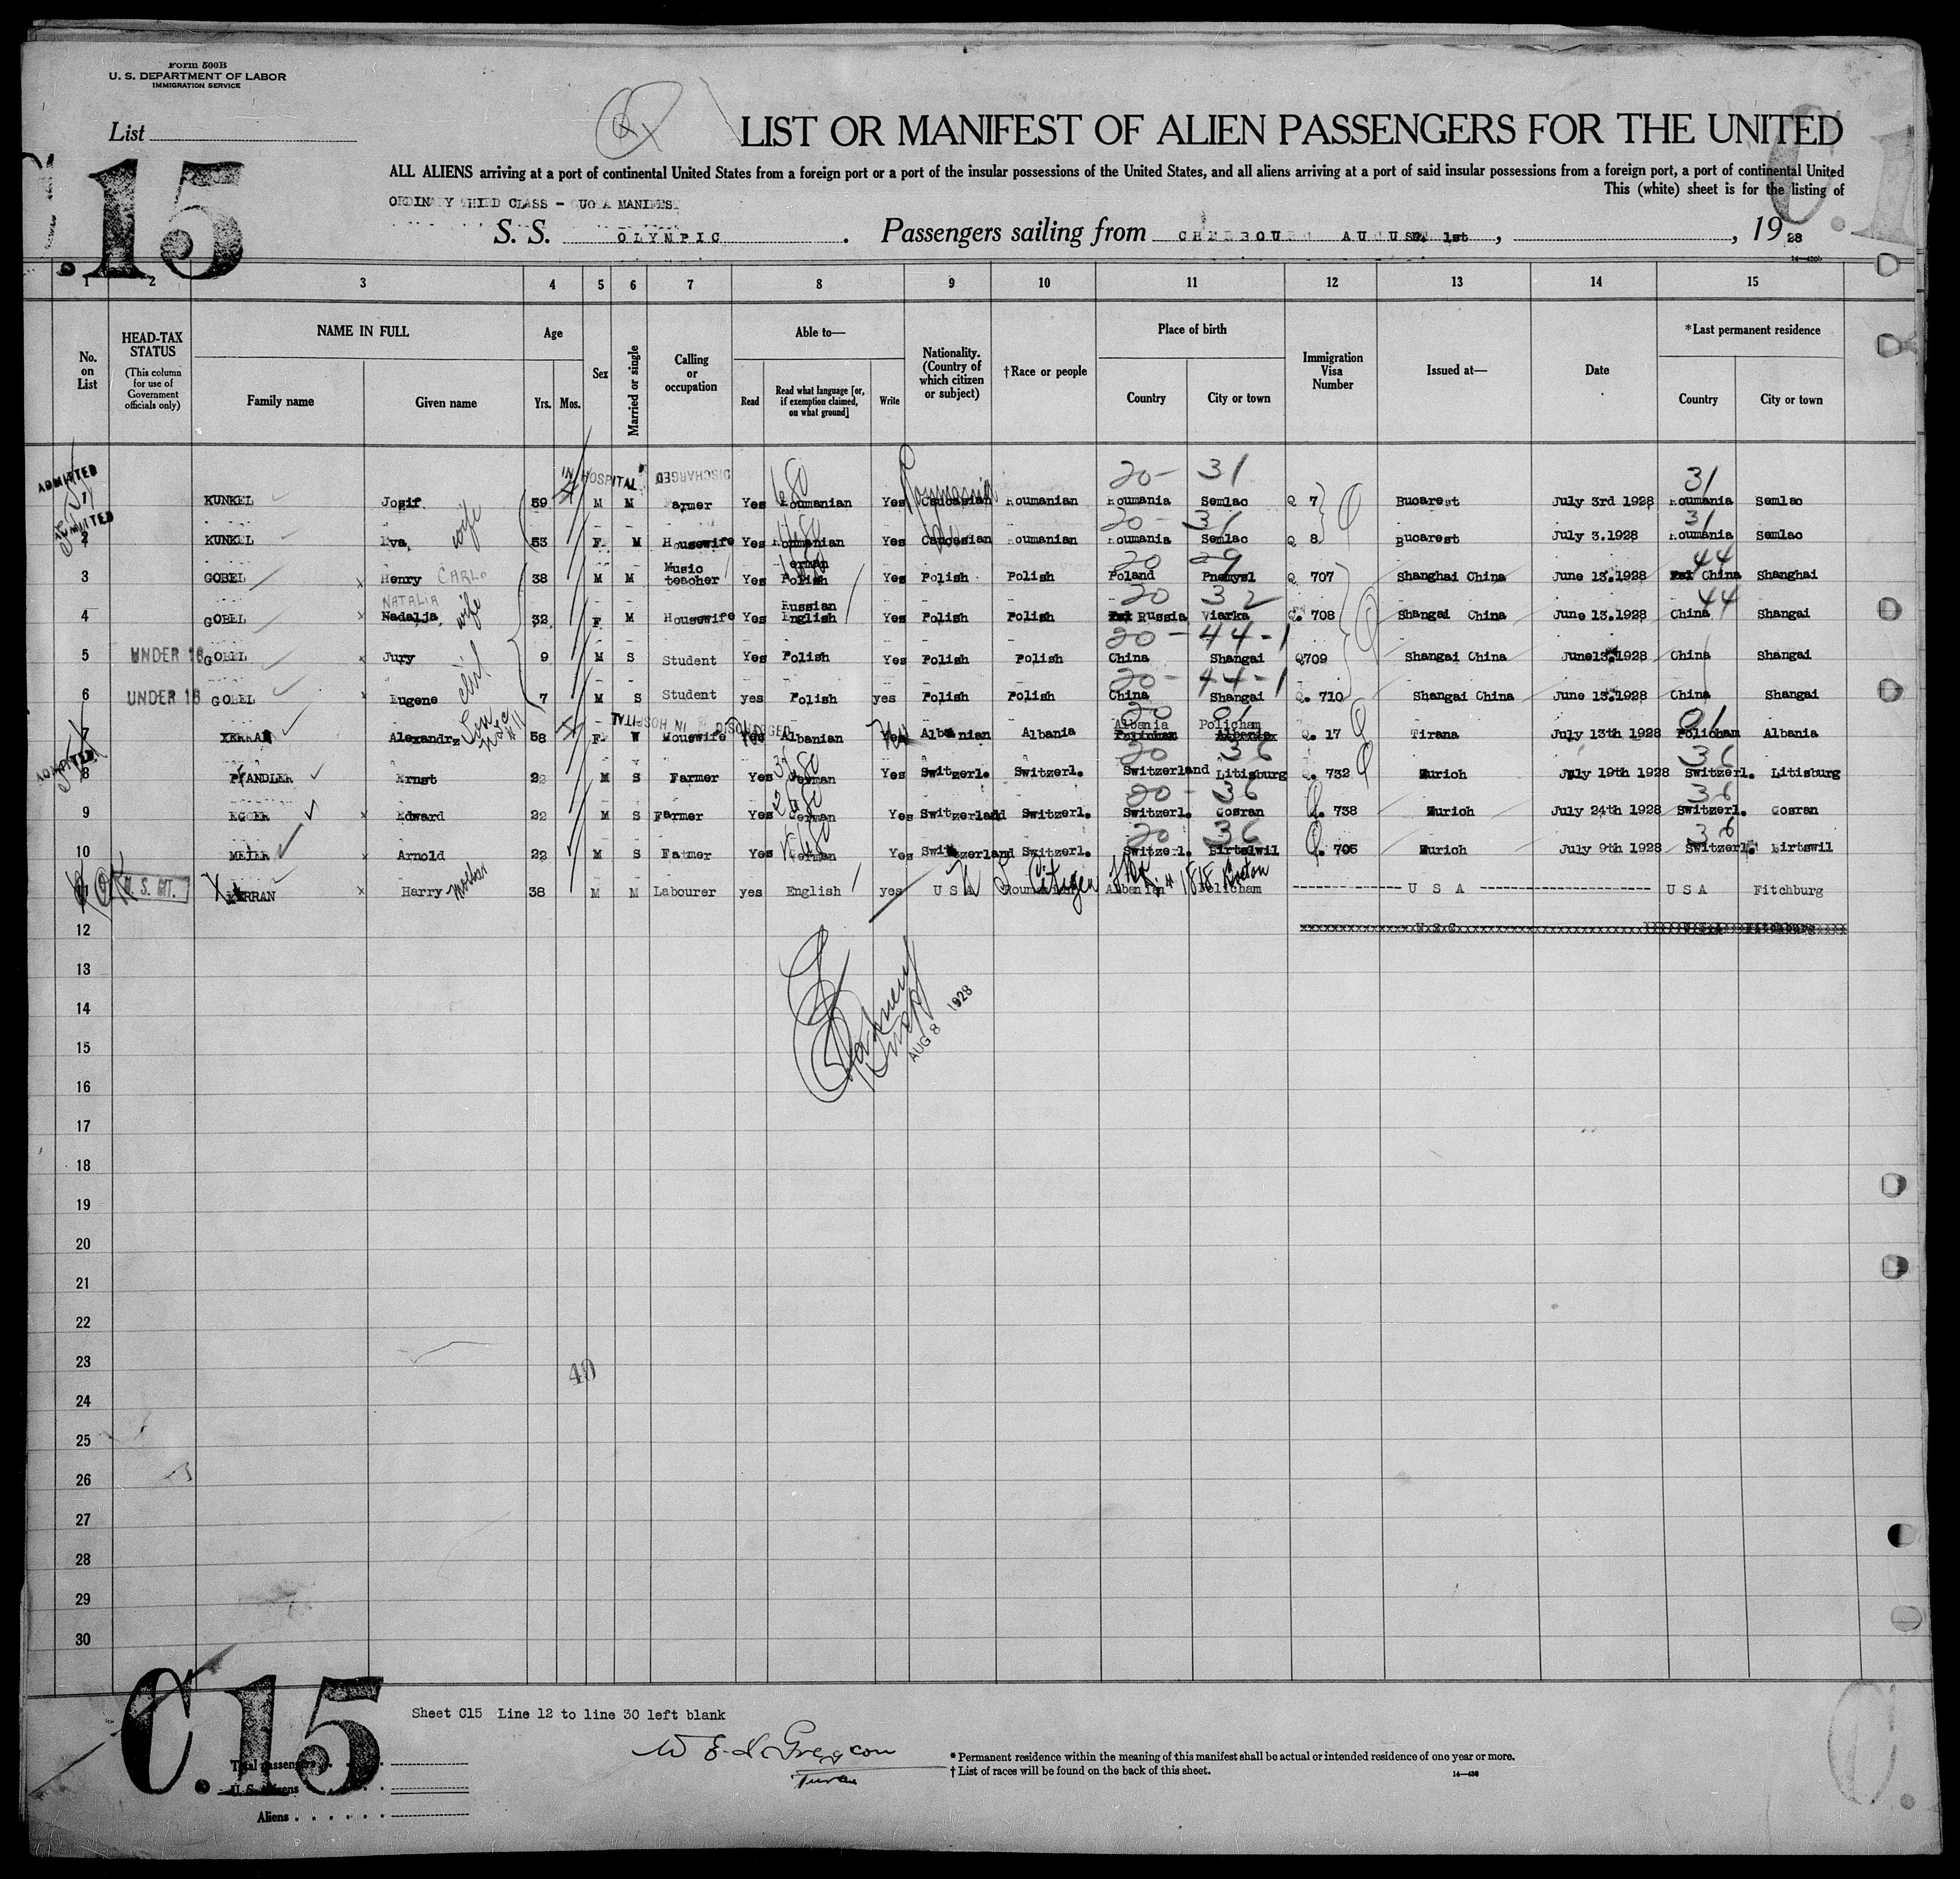 Form 500B
U. S. DEPARTMENT OF LABOR
IMMIGRATION SERVICE
List
C.15
LIST OR MANIFEST OF ALIEN PASSENGERS FOR THE UNITED
ALL ALIENS arriving at a port of continental United States from a foreign port or a port of the insular possessions of the United States, and all aliens arriving at a port of said insular possessions from a foreign port, a port of continental United
This (white) sheet is for the listing of
ORDINARY THIRD CLASS - QUOTA MANIFEST
S. S. OLYMPIC. Passengers sailing from CHERBOURG AUGUST 1st, , 1928
1 2 3 4 5 6 7 8 9 10 11 12 13 14 15
No. on List
HEAD-TAX STATUS
(This column for use of Government officials only)
NAME IN FULL
Family name Given name
Age
Yrs. Mos.
Sex
Married or single
Calling or occupation
Able to—
Read Read what language [or, if exemption claimed, on what ground] Write
Nationality. (Country of which citizen or subject)
†Race or people
Place of birth
Country City or town
Immigration Visa Number
Issued at—
Date
*Last permanent residence
Country City or town
IN HOSPITAL DISCHARGED
20- 31 31
ADMITTED 1 KUNKEL Josif 59 M M Farmer Yes Roumanian Yes Caucasian Roumania Roumanian Roumania Semlac Q 7 Bucarest July 3rd 1928 Roumania Semlac
20- 31 31
ADMITTED 2 KUNKEL Eva wife 53 F M Housewife Yes Roumanian Yes Caucasian Roumanian Roumania Semlac Q 8 Bucarest July 3.1928 Roumania Semlac
20 29 44
3 GOBEL Henry CARLO 38 M M Music teacher Yes German Polish Yes Polish Polish Poland Q 707 Shanghai China June 13.1928 China Shanghai
20 32 44
4 GOBEL NATALIA Nadalja wife 32 F M Housewife Yes Russian English Yes Polish Polish Russia Viarka Q. 708 Shangai China June 13.1928 China Shangai
20-44-1
5 UNDER 16 GOBEL Jury 9 M S Student Yes Polish Yes Polish Polish China Shangai Q709 Shangai China June13.1928 China Shangai
20-44-1
6 UNDER 16 GOBEL Eugene 7 M S Student yes Polish yes Polish Polish China Shangai Q. 710 Shangai China June 13.1928 China Shangai
IN HOSPITAL DISCHARGED
20 01 01
7 XERRAN Alexandra 58 F W Housewife Albanian Albanian Albania Albania Policham Q. 17 Tirana July 13th 1928 Policham Albania
20 36 36
ADMITTED 8 PFANDLER Ernst 22 M S Farmer Yes German Yes Switzerl. Switzerl. Switzerland Litisburg Q. 732 Zurich July 19th 1928 Switzerl. Litisburg
20- 36 36
9 EGGER Edward 22 M S Farmer Yes German Yes Switzerland Switzerl. Switzerl. Gosran Q. 738 Zurich July 24th 1928 Switzerl. Gosran
20 36 36
10 MEIER Arnold 22 M S Farmer Yes German Yes Switzerland Switzerl. Switzerl. Birtswil Q. 705 Zurich July 9th 1928 Switzerl. Birtswil
11 U. S. CIT. XERRAN Harry 38 M M Labourer yes English yes U S A Citizen Albania Policham U S A U S A Fitchburg
12
13
14
15
16
17
18
19
20
21
22
23
24
25
26
27
28
29
30
AUG 8 1928
40
C.15
Sheet C15 Line 12 to line 30 left blank
Total passengers
U. S. citizens
Aliens
*Permanent residence within the meaning of this manifest shall be actual or intended residence of one year or more.
†List of races will be found on the back of this sheet.
14—430